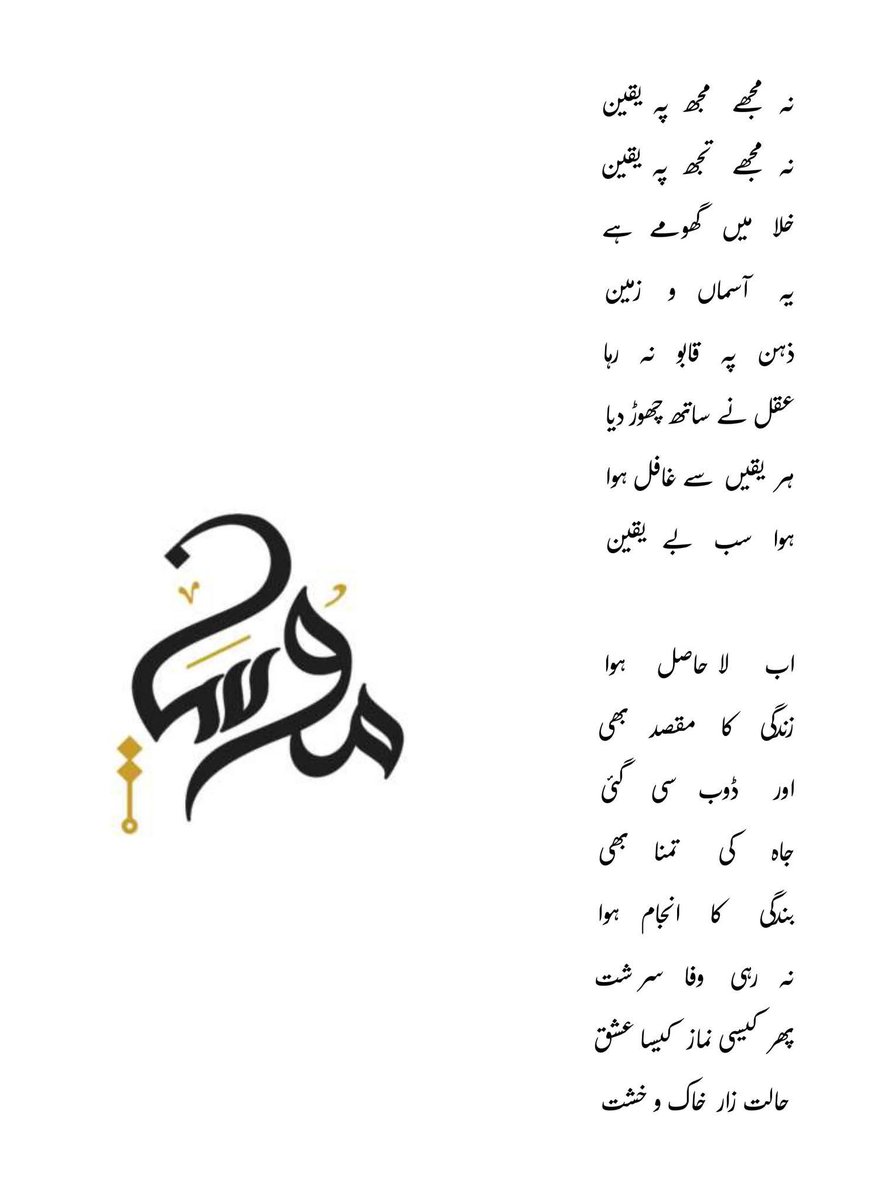 نہ مجھے مجھ پہ یقین
نہ مجھے تجھ پہ یقین
خلا میں گھومے ہے
یہ آسماں و زمین
ذہن پہ قابو نہ رہا
عقل نے ساتھ چھوڑ دیا
ہر یقیں سے غافل ہوا
ہوا سب بے یقین
اب لا حاصل ہوا
زندگی کا مقصد بھی
اور ڈوب سی گئی
جاہ کی تمنا بھی
بندگی کا انجام ہوا
نہ رہی وفا سر شت
پھر کیسی نماز کیسا عشق
حالت زار خاک و خشت